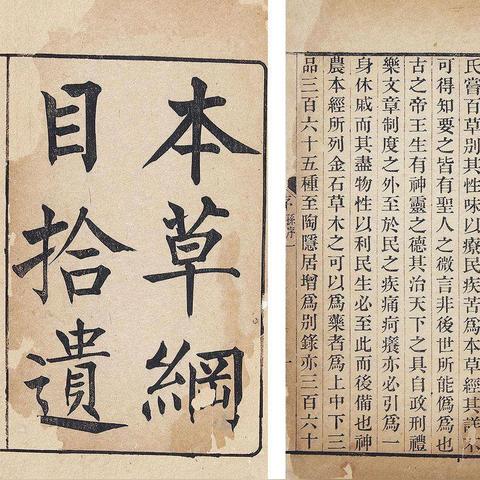 本草綱
目拾遺
氏嘗百草別其性味以療民疾苦爲本草經其詳不
可得知要之皆有聖人之微言非後世所能僞爲也
古之帝王生有神靈之德其治天下之具自政刑禮
樂文章制度之外至於民之疾痛疴癢亦必引爲一
身休戚而其盡物性以利民生必至此而後備也神
農本經所列金石草木之可以爲藥者爲上中下三
品三百六十五種至陶隱居增爲別錄亦三百六十
序